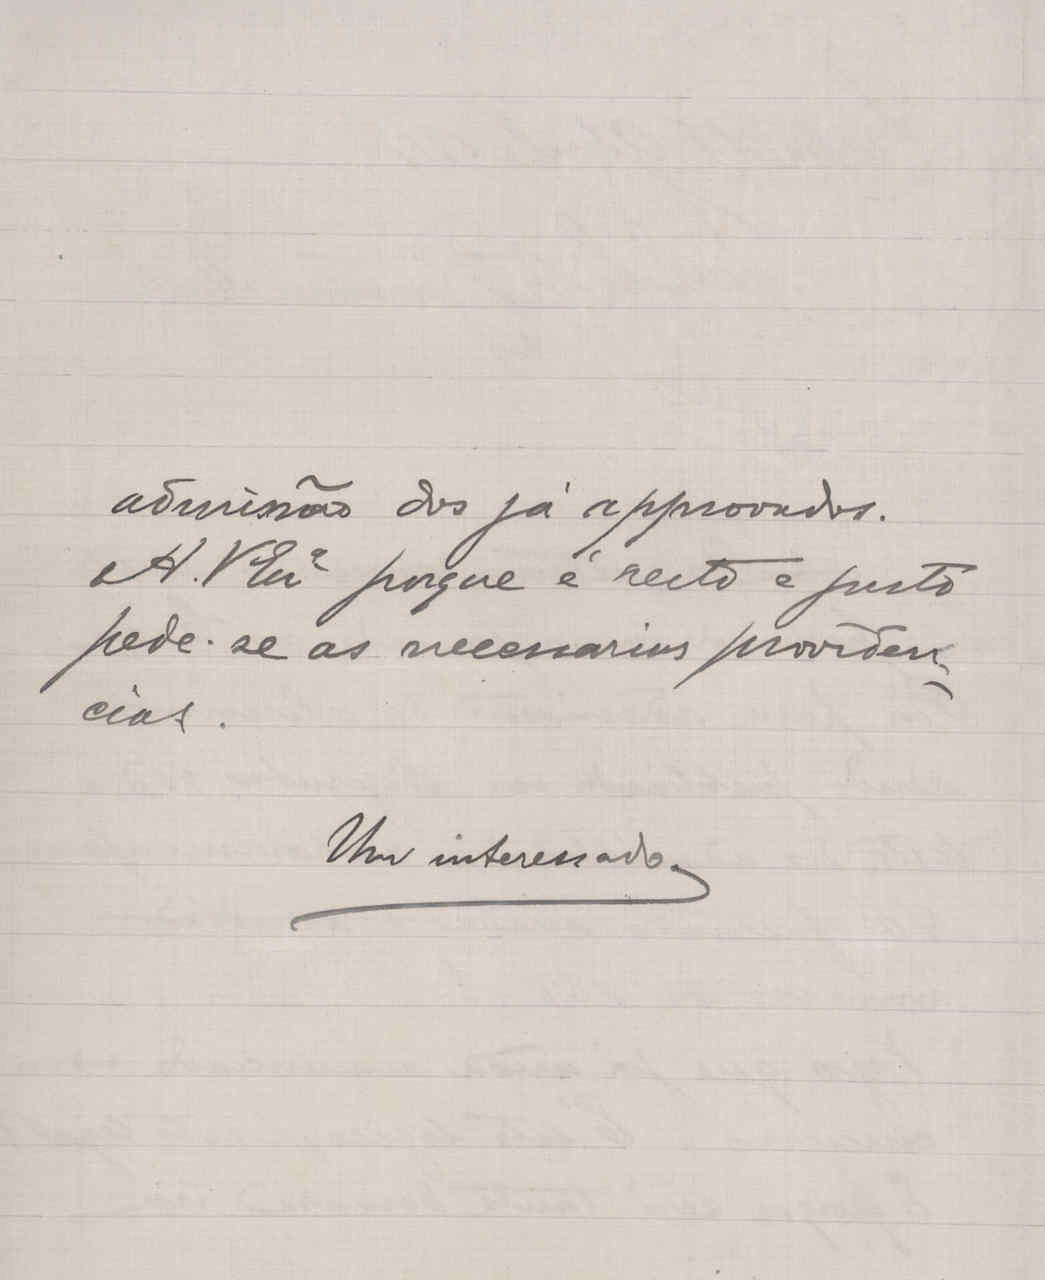 admissão dos já approvados.
A. V. Exª porque é recto e justo
pede-se as necessarias providen-
cias.
Um interessado.